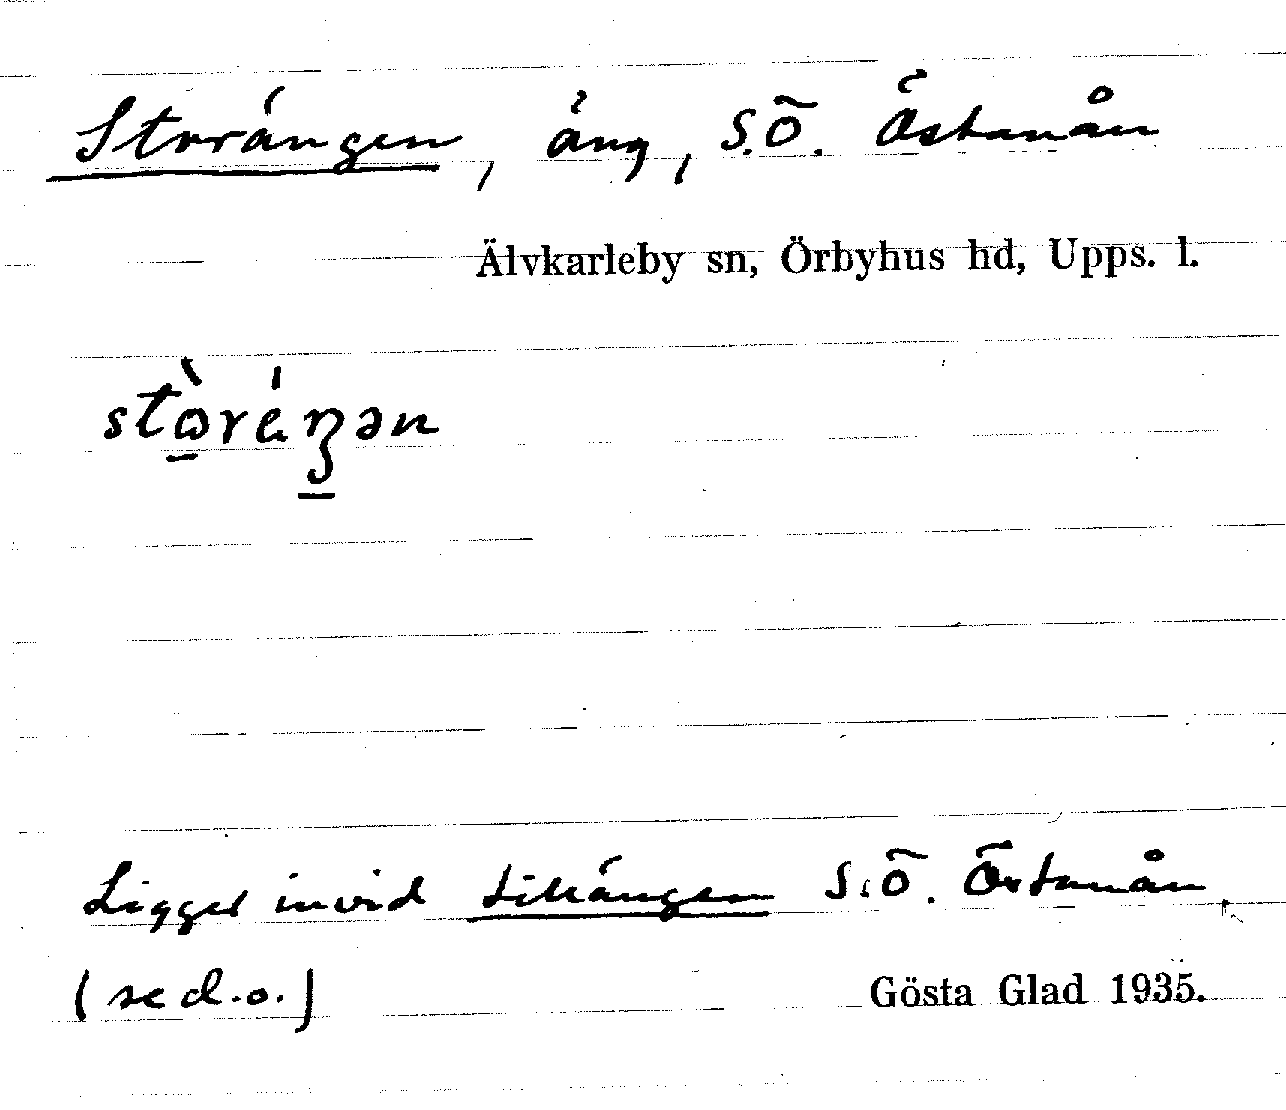 Storängen, äng, S.Ö. Östanån
Älvkarleby sn, Örbyhus hd, Upps. l.
stòräŋən
Ligger invid Lillängen S.Ö. Östanån
(se d.o.)
Gösta Glad 1935.